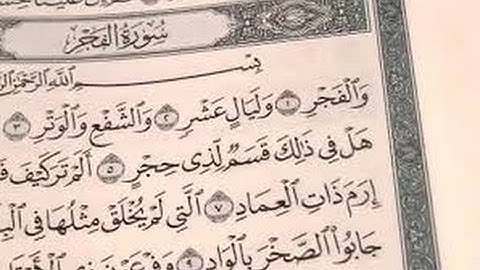 سُورَةُ الفَجْرِ
بِسْمِ اللَّهِ الرَّحْمَٰنِ
وَالْفَجْرِ ١ وَلَيَالٍ عَشْرٍ ٢ وَالشَّفْعِ وَالْوَتْرِ ٣
هَلْ فِي ذَٰلِكَ قَسَمٌ لِّذِي حِجْرٍ ٥ أَلَمْ تَرَ كَيْفَ
إِرَمَ ذَاتِ الْعِمَادِ ٧ الَّتِي لَمْ يُخْلَقْ مِثْلُهَا فِي
جَابُوا الصَّخْرَ بِالْوَادِ ٩ وَفِرْعَوْنَ ذِي